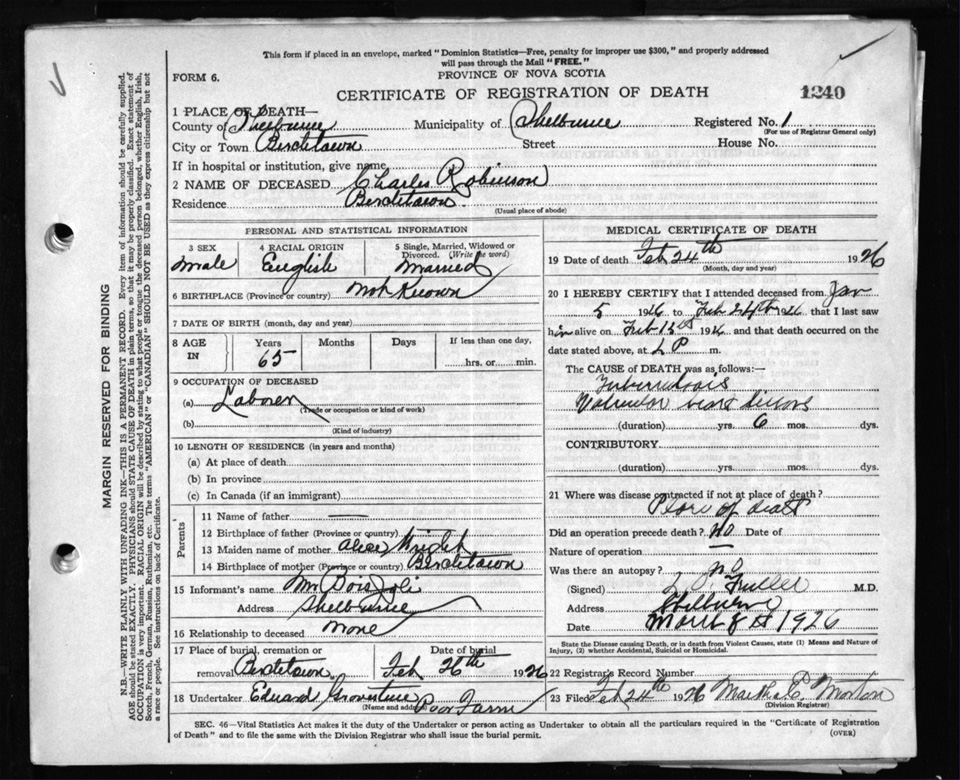 This form if placed in an envelope, marked "Dominion Statistics—Free, penalty for improper use $300," and properly addressed
will pass through the Mail "FREE."
FORM 6.
PROVINCE OF NOVA SCOTIA
CERTIFICATE OF REGISTRATION OF DEATH
1240
1 PLACE OF DEATH—
County of Shelburne Municipality of Shelburne Registered No. 1
(For use of Registrar General only)
City or Town Birchtown Street House No.
If in hospital or institution, give name
2 NAME OF DECEASED Charles Robinson
Residence Birchtown
(Usual place of abode)
PERSONAL AND STATISTICAL INFORMATION
3 SEX
male
4 RACIAL ORIGIN
English
5 Single, Married, Widowed or
Divorced. (Write the word)
Married
6 BIRTHPLACE (Province or country) Not Known
7 DATE OF BIRTH (month, day and year)
8 AGE IN
Years
65
Months
Days
If less than one day,
hrs. or min.
9 OCCUPATION OF DECEASED
(a) Laborer
(Trade or occupation or kind of work)
(b)
(Kind of industry)
10 LENGTH OF RESIDENCE (in years and months)
(a) At place of death
(b) In province
(c) In Canada (if an immigrant)
Parents
11 Name of father —
12 Birthplace of father (Province or country)
13 Maiden name of mother Alice Wright
14 Birthplace of mother (Province or country) Birchtown
15 Informant's name Mr
Address Shelburne
16 Relationship to deceased None
17 Place of burial, cremation or
removal Birchtown
Date of burial
Feb 26th 1926
18 Undertaker Edward
(Name and address) Poor Farm
MEDICAL CERTIFICATE OF DEATH
19 Date of death Feb 24th 1926
(Month, day and year)
20 I HEREBY CERTIFY that I attended deceased from Jan
5 1926 to Feb 24th 1926 that I last saw
him alive on Feb 1926 and that death occurred on
the date stated above, at P m.
The CAUSE of DEATH was as follows:—
Tuberculosis
Valvular heart disease
(duration) yrs. 6 mos. dys.
CONTRIBUTORY
(duration) yrs. mos. dys.
21 Where was disease contracted if not at place of death?
Place of death
Did an operation precede death? No Date of
Nature of operation —
Was there an autopsy? No
(Signed) Fuller M.D.
Address Shelburne
Date March 1926
State the Disease causing Death, or in death from Violent Causes, state (1) Means and Nature of
Injury, (2) whether Accidental, Suicidal or Homicidal.
22 Registrar's Record Number
23 Filed Feb 24th 1926 Martha E. Morton
(Division Registrar)
SEC. 46—Vital Statistics Act makes it the duty of the Undertaker or person acting as Undertaker to obtain all the particulars required in the "Certificate of Registration
of Death" and to file the same with the Division Registrar who shall issue the burial permit.
(OVER)
MARGIN RESERVED FOR BINDING
N.B.—WRITE PLAINLY WITH UNFADING INK—THIS IS A PERMANENT RECORD. Every item of information should be carefully supplied.
AGE should be stated EXACTLY. PHYSICIANS should STATE CAUSE OF DEATH in plain terms, so that it may be properly classified. Exact statement of
OCCUPATION is very important. RACIAL ORIGIN will be described by stating to what people or tongue the deceased person belonged, whether English, Irish,
Scotch, French, German, Russian, Ruthenian, etc. The terms "AMERICAN" or "CANADIAN" SHOULD NOT BE USED as they express citizenship but not
a race or people. See instructions on back of Certificate.